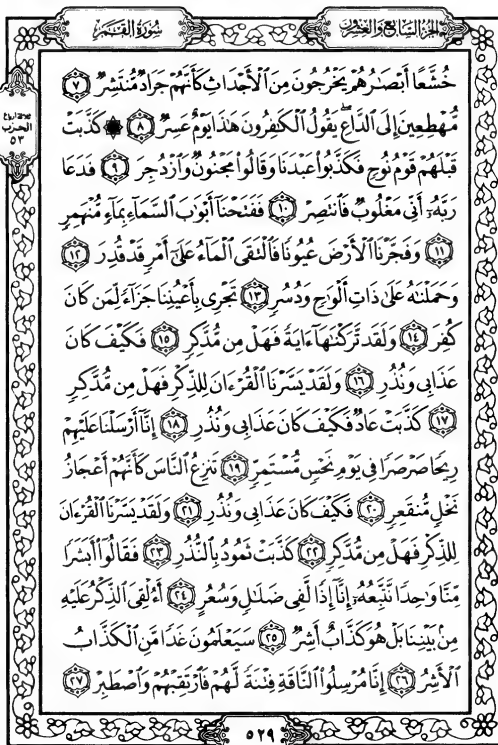 الجزء السابع والعشرون
سورة القمر
خُشَّعًا أَبْصَٰرُهُمْ يَخْرُجُونَ مِنَ ٱلْأَجْدَاثِ كَأَنَّهُمْ جَرَادٌ مُّنتَشِرٌ ٧
مُّهْطِعِينَ إِلَى ٱلدَّاعِ يَقُولُ ٱلْكَٰفِرُونَ هَٰذَا يَوْمٌ عَسِرٌ ٨ ۞ كَذَّبَتْ
قَبْلَهُمْ قَوْمُ نُوحٍ فَكَذَّبُوا۟ عَبْدَنَا وَقَالُوا۟ مَجْنُونٌ وَٱزْدُجِرَ ٩ فَدَعَا
رَبَّهُۥٓ أَنِّى مَغْلُوبٌ فَٱنتَصِرْ ١٠ فَفَتَحْنَآ أَبْوَٰبَ ٱلسَّمَآءِ بِمَآءٍ مُّنْهَمِرٍ
١١ وَفَجَّرْنَا ٱلْأَرْضَ عُيُونًا فَٱلْتَقَى ٱلْمَآءُ عَلَىٰٓ أَمْرٍ قَدْ قُدِرَ ١٢
وَحَمَلْنَٰهُ عَلَىٰ ذَاتِ أَلْوَٰحٍ وَدُسُرٍ ١٣ تَجْرِى بِأَعْيُنِنَا جَزَآءً لِّمَن كَانَ
كُفِرَ ١٤ وَلَقَد تَّرَكْنَٰهَآ ءَايَةً فَهَلْ مِن مُّدَّكِرٍ ١٥ فَكَيْفَ كَانَ
عَذَابِى وَنُذُرِ ١٦ وَلَقَدْ يَسَّرْنَا ٱلْقُرْءَانَ لِلذِّكْرِ فَهَلْ مِن مُّدَّكِرٍ
١٧ كَذَّبَتْ عَادٌ فَكَيْفَ كَانَ عَذَابِى وَنُذُرِ ١٨ إِنَّآ أَرْسَلْنَا عَلَيْهِمْ
رِيحًا صَرْصَرًا فِى يَوْمِ نَحْسٍ مُّسْتَمِرٍّ ١٩ تَنزِعُ ٱلنَّاسَ كَأَنَّهُمْ أَعْجَازُ
نَخْلٍ مُّنقَعِرٍ ٢٠ فَكَيْفَ كَانَ عَذَابِى وَنُذُرِ ٢١ وَلَقَدْ يَسَّرْنَا ٱلْقُرْءَانَ
لِلذِّكْرِ فَهَلْ مِن مُّدَّكِرٍ ٢٢ كَذَّبَتْ ثَمُودُ بِٱلنُّذُرِ ٢٣ فَقَالُوٓا۟ أَبَشَرًا
مِّنَّا وَٰحِدًا نَّتَّبِعُهُۥٓ إِنَّآ إِذًا لَّفِى ضَلَٰلٍ وَسُعُرٍ ٢٤ أَءُلْقِىَ ٱلذِّكْرُ عَلَيْهِ
مِنۢ بَيْنِنَا بَلْ هُوَ كَذَّابٌ أَشِرٌ ٢٥ سَيَعْلَمُونَ غَدًا مَّنِ ٱلْكَذَّابُ
ٱلْأَشِرُ ٢٦ إِنَّا مُرْسِلُوا۟ ٱلنَّاقَةِ فِتْنَةً لَّهُمْ فَٱرْتَقِبْهُمْ وَٱصْطَبِرْ ٢٧
ثلاثة أرباع
الحزب
٥٣
٥٢٩